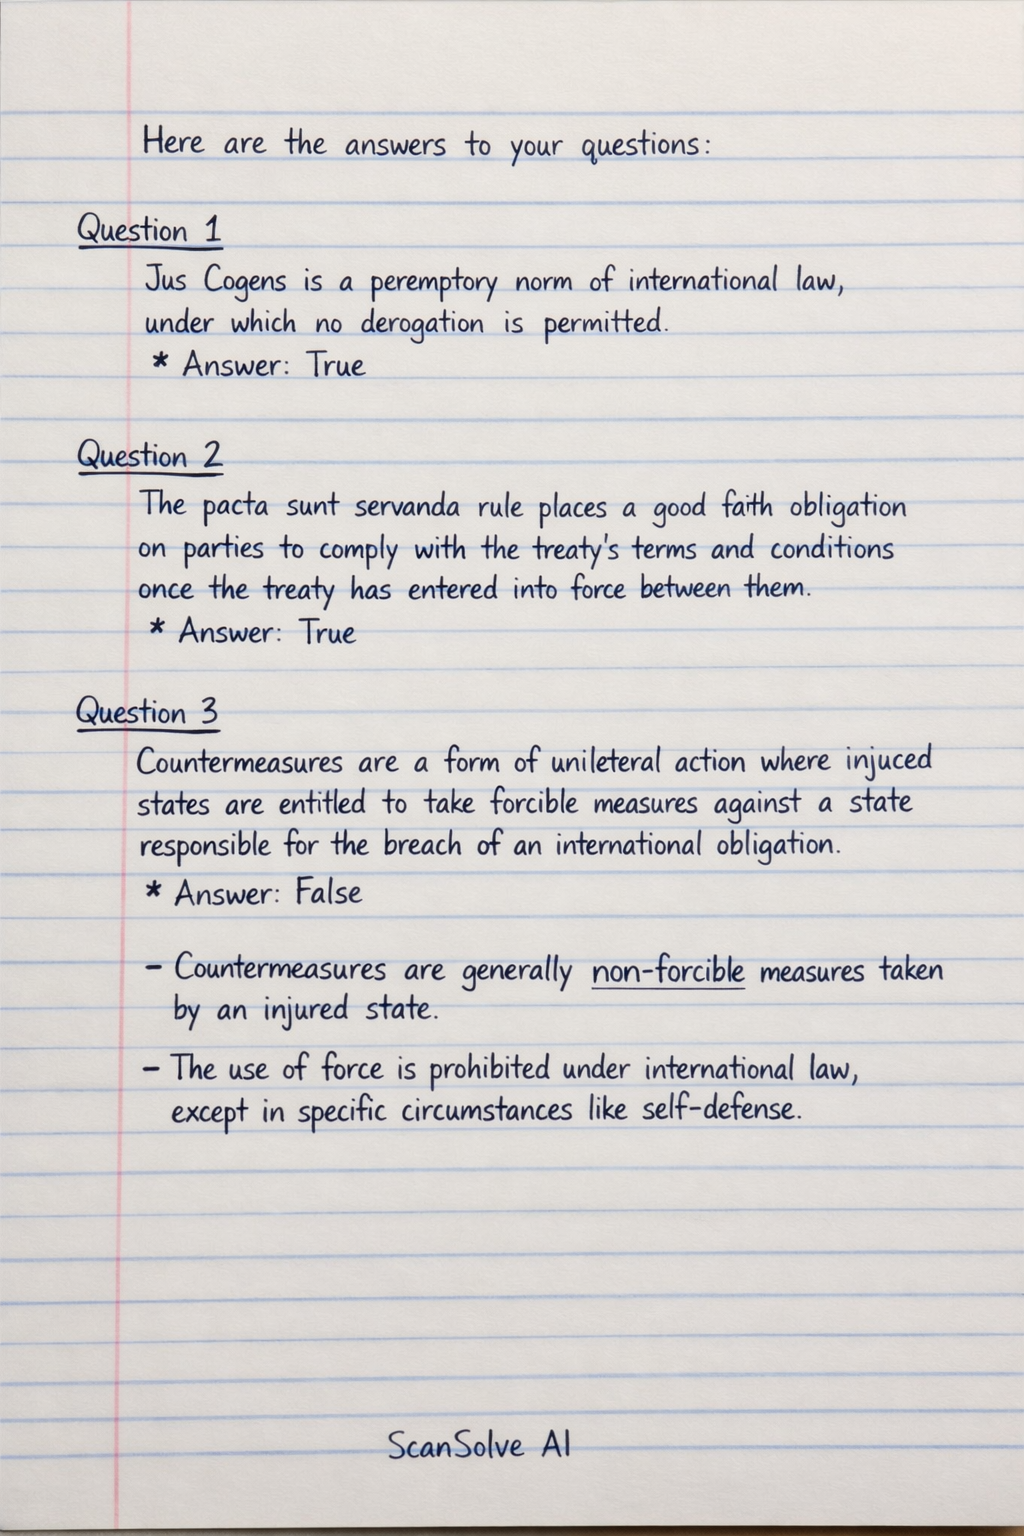 Here are the answers to your questions:
Question 1
Jus Cogens is a peremptory norm of international law,
under which no derogation is permitted.
* Answer: True
Question 2
The pacta sunt servanda rule places a good faith obligation
on parties to comply with the treaty's terms and conditions
once the treaty has entered into force between them.
* Answer: True
Question 3
Countermeasures are a form of unileteral action where injuced
states are entitled to take forcible measures against a state
responsible for the breach of an international obligation.
* Answer: False
- Countermeasures are generally non-forcible measures taken
by an injured state.
- The use of force is prohibited under international law,
except in specific circumstances like self-defense.
ScanSolve AI